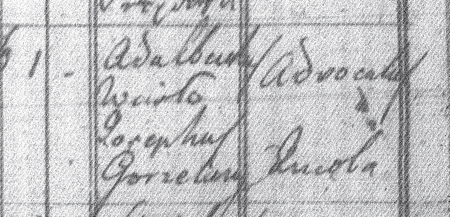 1 - Adalbertus Advocatus
Wcisło
Josephus
Gorzelany Incola